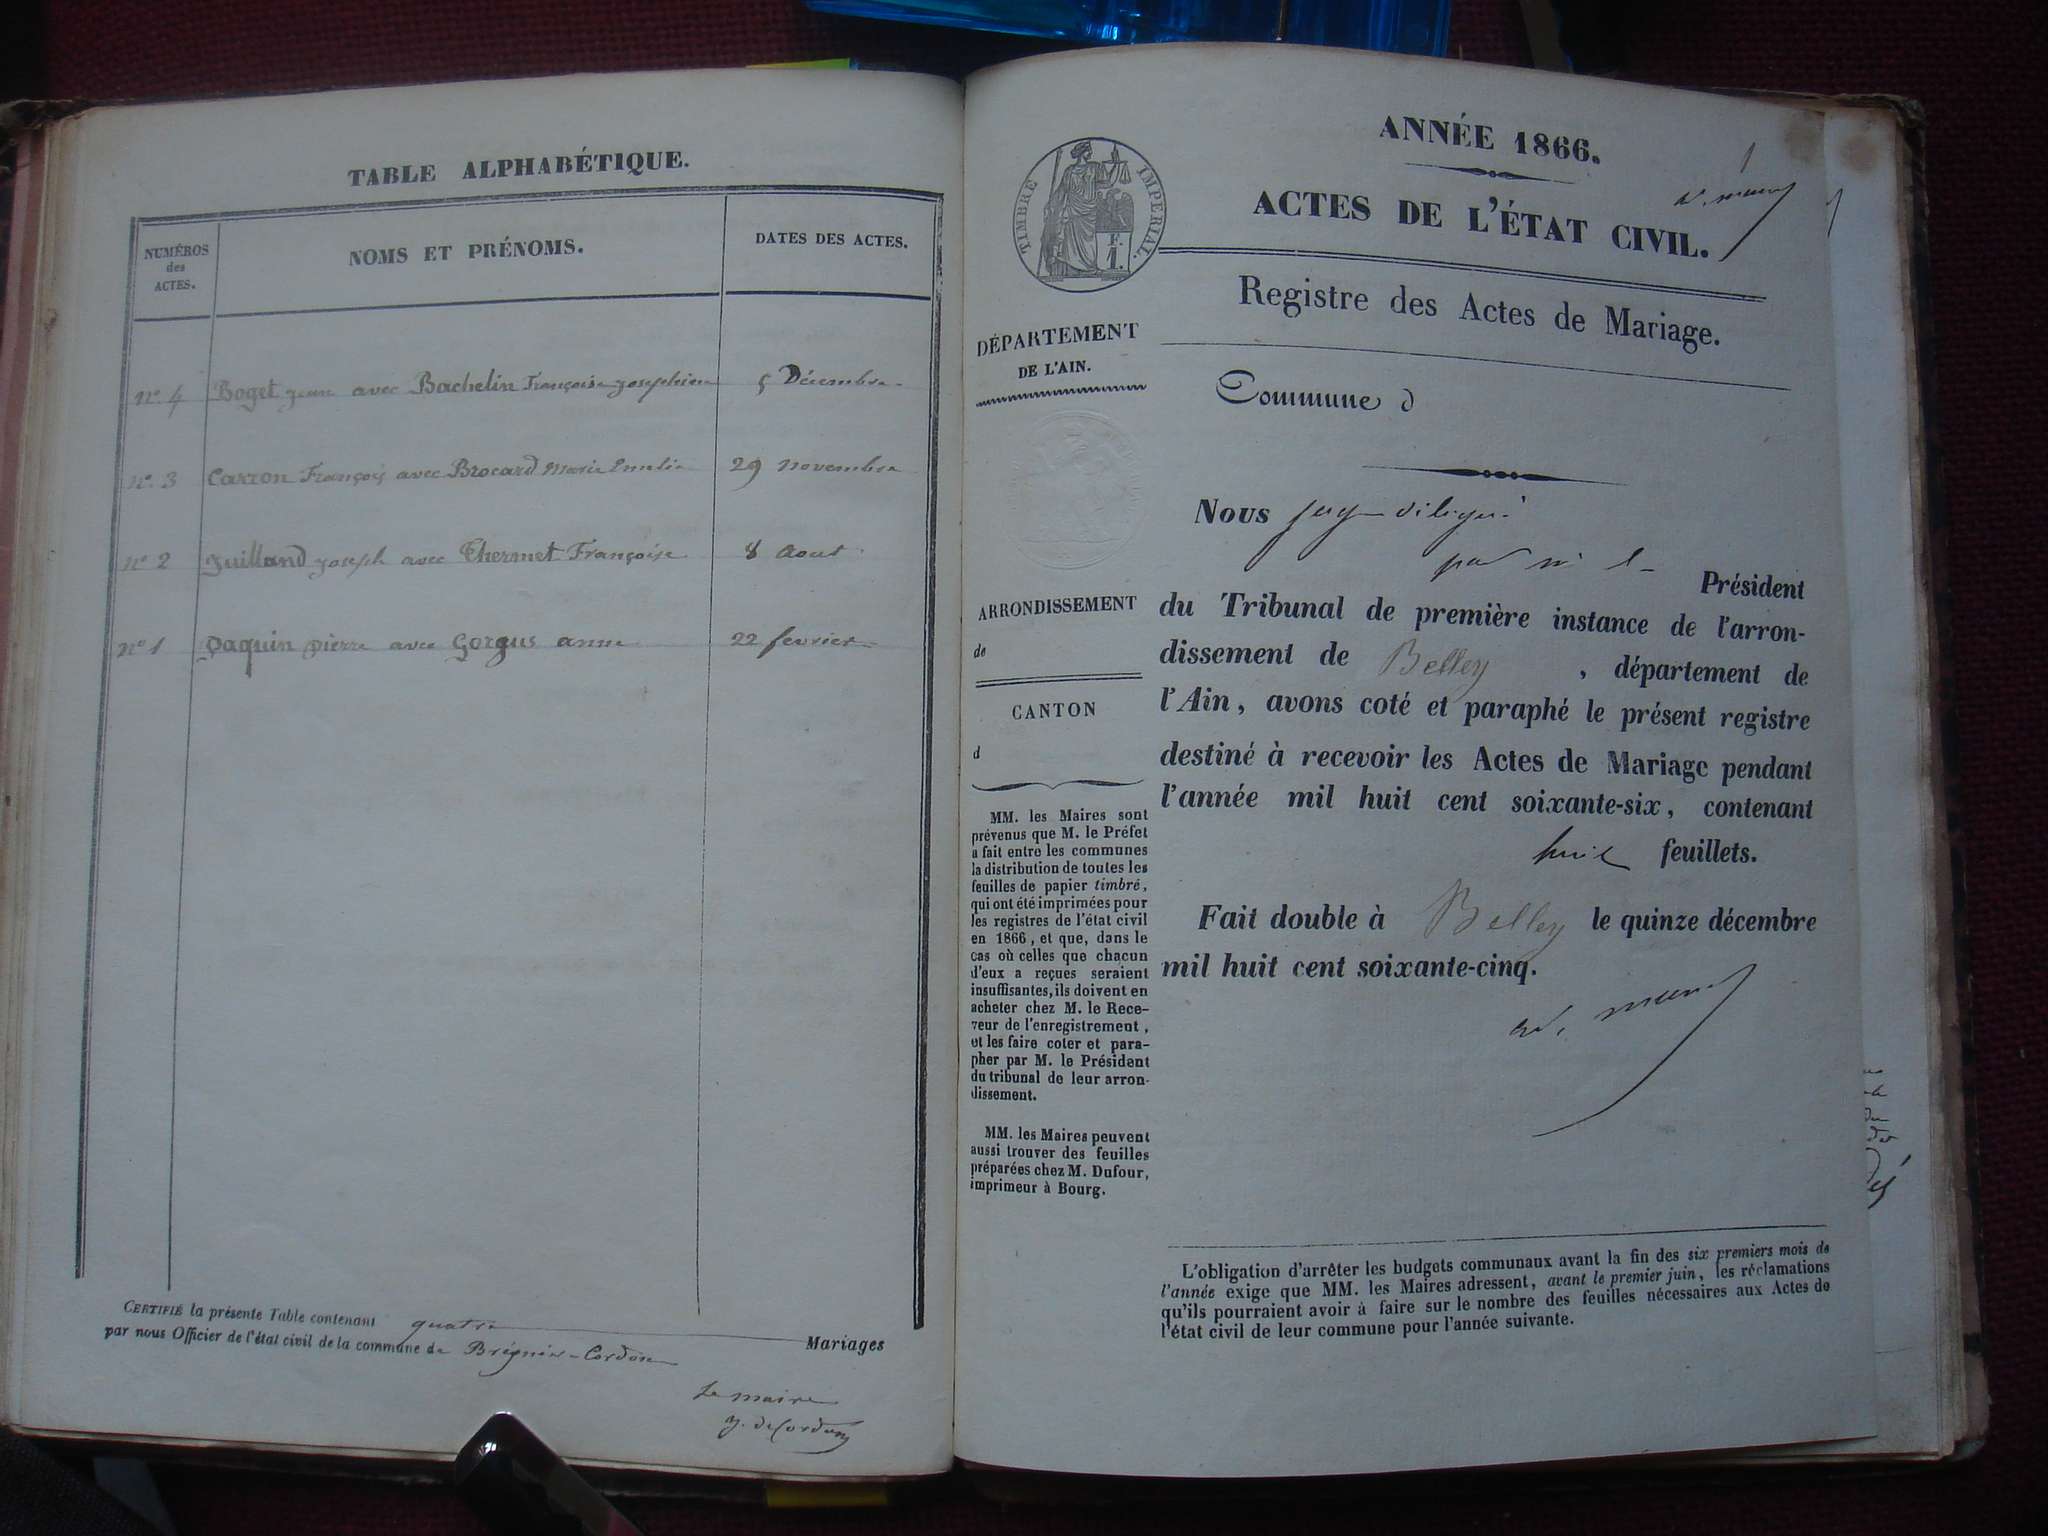 TABLE ALPHABÉTIQUE.
NUMÉROS des ACTES.
NOMS ET PRÉNOMS.
DATES DES ACTES.
nº. 4 Boget jean avec Bachelin Françoise josephine 5 Décembre
nº. 3 Carron François avec Brocard Marie Emelie 29 novembre
nº 2 Guilland joseph avec Thermet Françoise 8 Aout
nº 1 Paquin pierre avec Gorgus anne 22 fevrier
CERTIFIÉ la présente Table contenant quatre Mariages
par nous Officier de l'état civil de la commune de Brégnier-Cordon
Le maire
de Cordon
ANNÉE 1866.
1
ACTES DE L'ÉTAT CIVIL.
TIMBRE IMPÉRIAL.
F.
1.
Registre des Actes de Mariage.
DÉPARTEMENT
DE L'AIN.
Commune d
Nous juge délégué
par Mr le Président
du Tribunal de première instance de l'arron-
dissement de Belley , département de
l'Ain, avons coté et paraphé le présent registre
destiné à recevoir les Actes de Mariage pendant
l'année mil huit cent soixante-six, contenant
huit feuillets.
Fait double à Belley le quinze décembre
mil huit cent soixante-cinq.
ARRONDISSEMENT
de
CANTON
d
MM. les Maires sont
prévenus que M. le Préfet
a fait entre les communes
la distribution de toutes les
feuilles de papier timbré,
qui ont été imprimées pour
les registres de l'état civil
en 1866, et que, dans le
cas où celles que chacun
d'eux a reçues seraient
insuffisantes, ils doivent en
acheter chez M. le Rece-
veur de l'enregistrement,
et les faire coter et para-
pher par M. le Président
du tribunal de leur arron-
dissement.
MM. les Maires peuvent
aussi trouver des feuilles
préparées chez M. Dufour,
imprimeur à Bourg.
L'obligation d'arrêter les budgets communaux avant la fin des six premiers mois de
l'année exige que MM. les Maires adressent, avant le premier juin, les réclamations
qu'ils pourraient avoir à faire sur le nombre des feuilles nécessaires aux Actes de
l'état civil de leur commune pour l'année suivante.